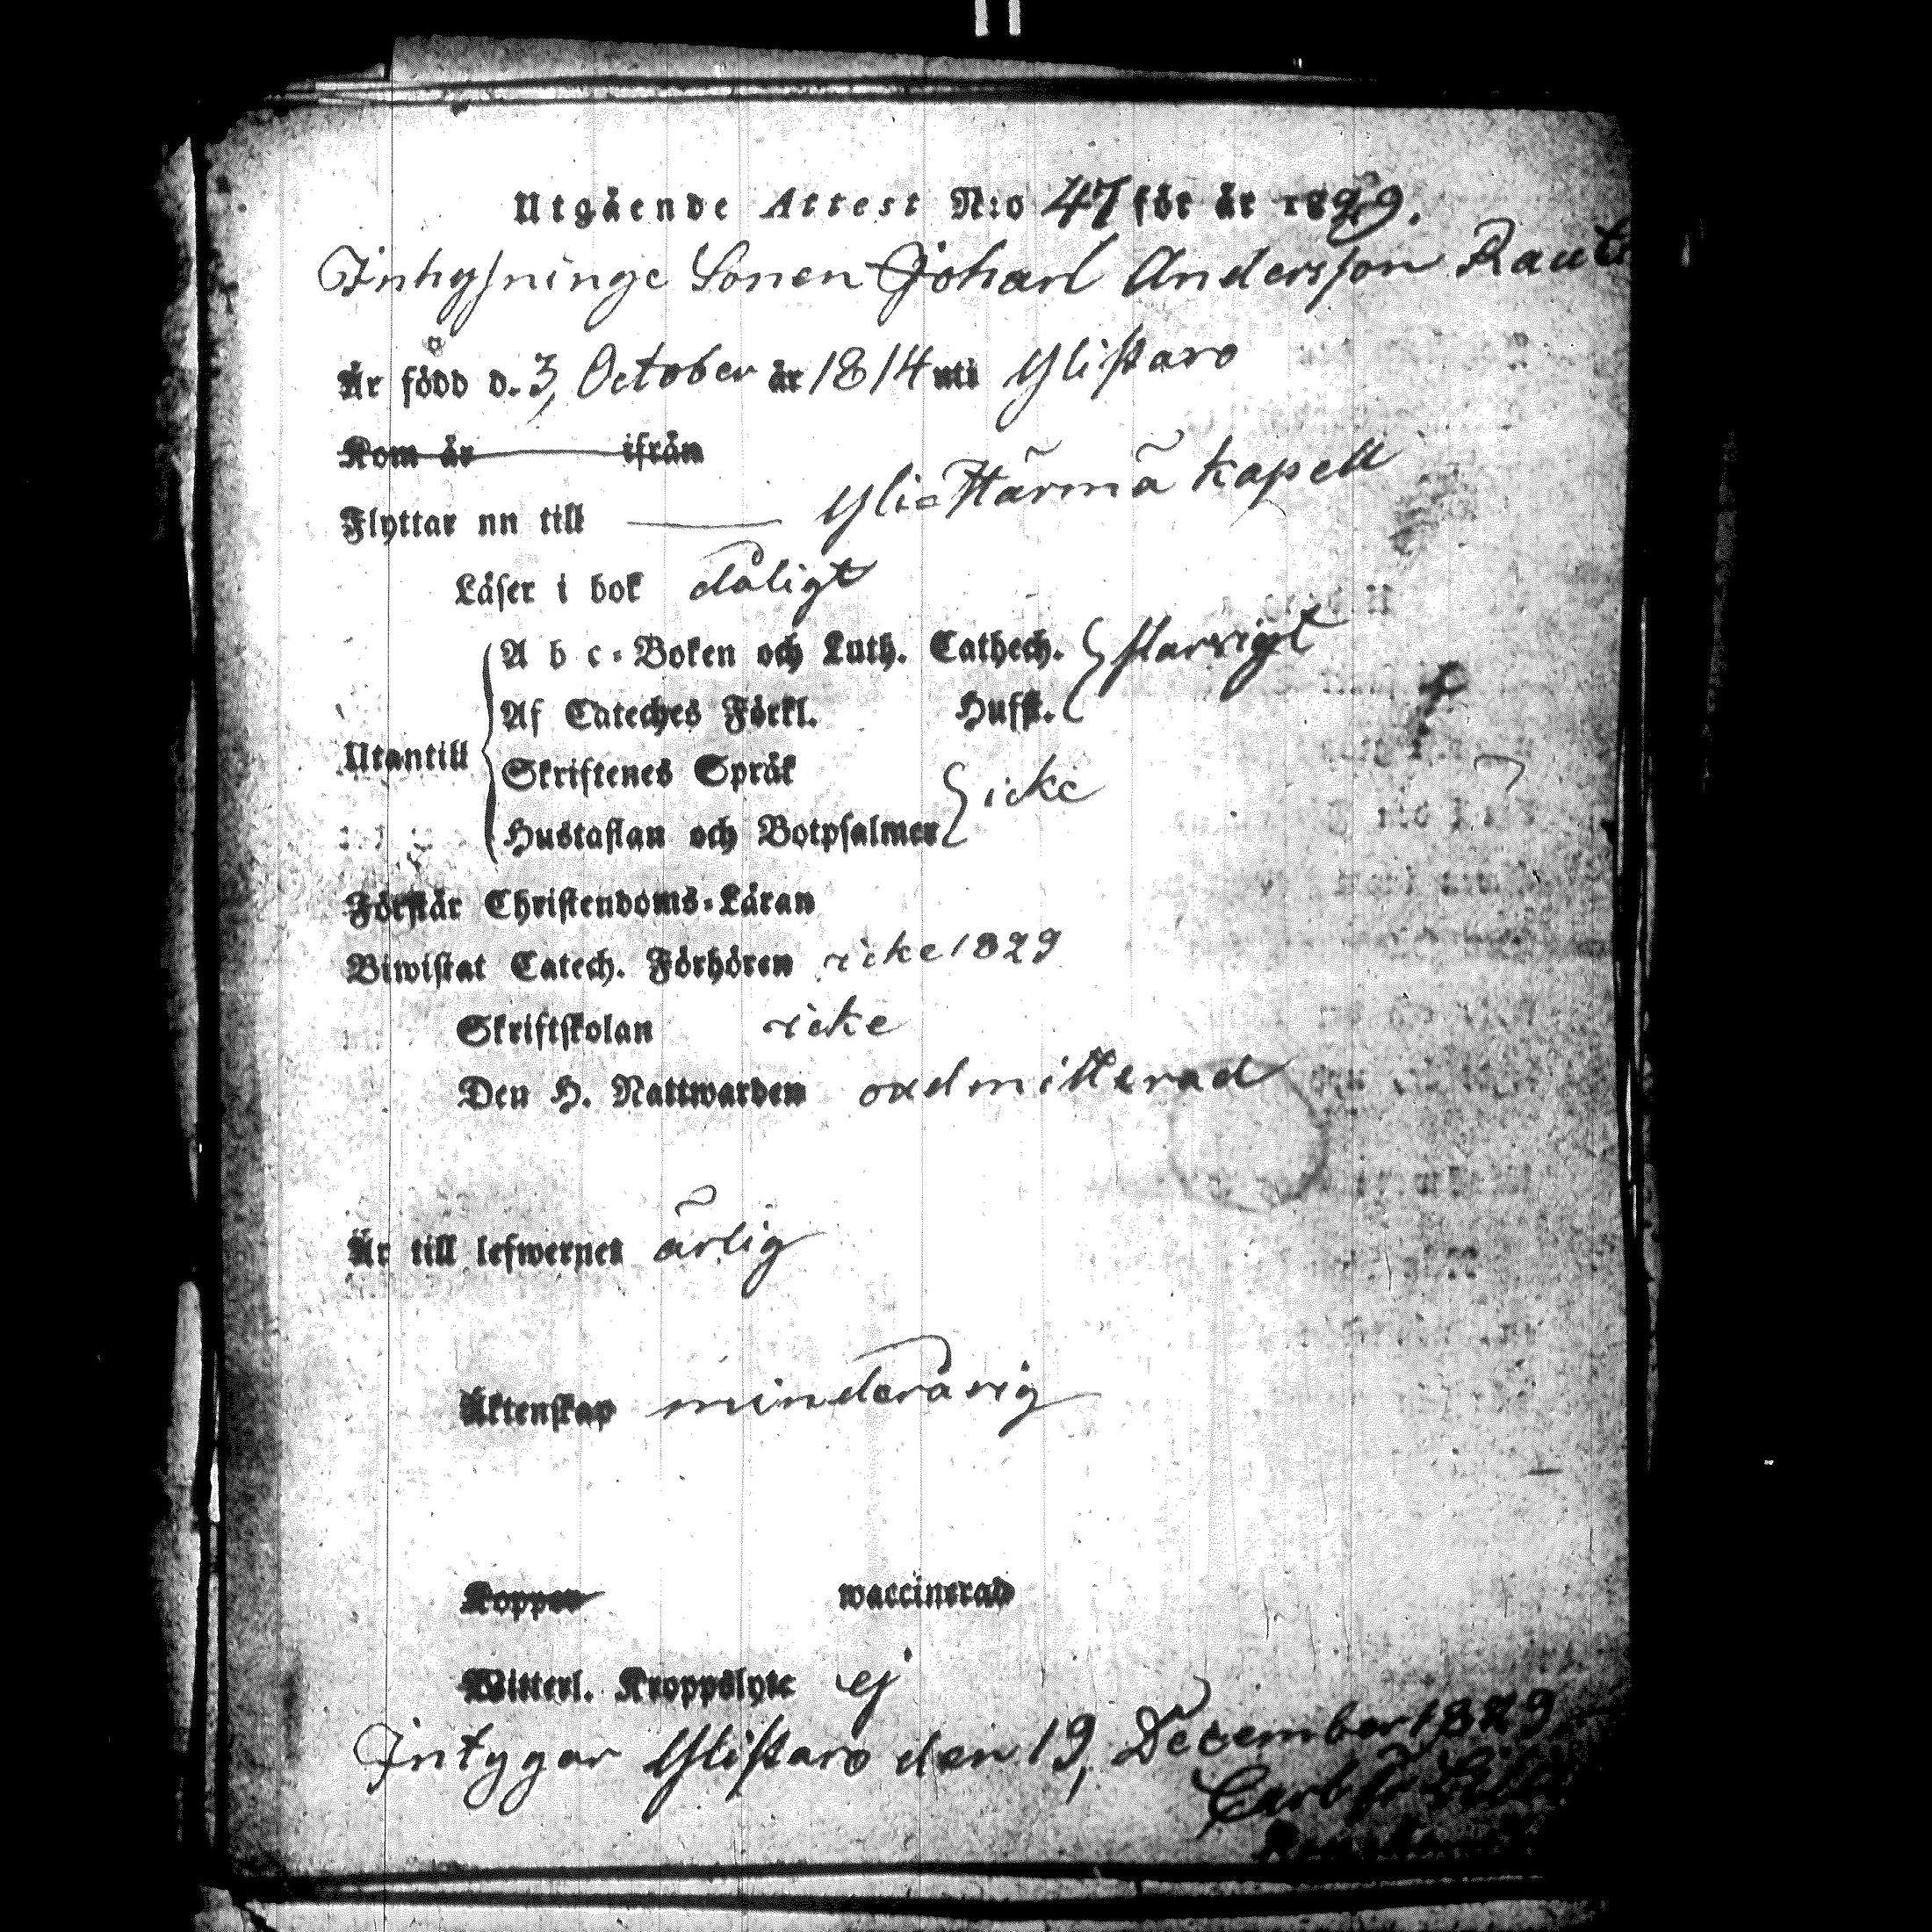 Utgående Attest N:o 47 för år 1829.
Inhysninge Sonen Johan Andersson
Är född d. 3, October år 1814 uti Ylistaro
Kom år ifrån
Flyttar nn till Yli-Härmä kapell
Läser i bok dåligt
A b c-Boken och Luth. Cathech. } starrigt
Af Cateches Förkl. Husst.
Utantill
Skriftenes Språk } icke
Hustaflan och Botpsalmer
Förstår Christendoms-Läran
Biwistat Catech. Förhören icke 1829
Skriftskolan icke
Den H. Nattwarden oadmitterad
Är till lefwernet ärlig
Äktenskap minderårig
Koppor waccinerad
Witterl. Kroppslyte ej
Intygar Ylistaro den 19, December 1829